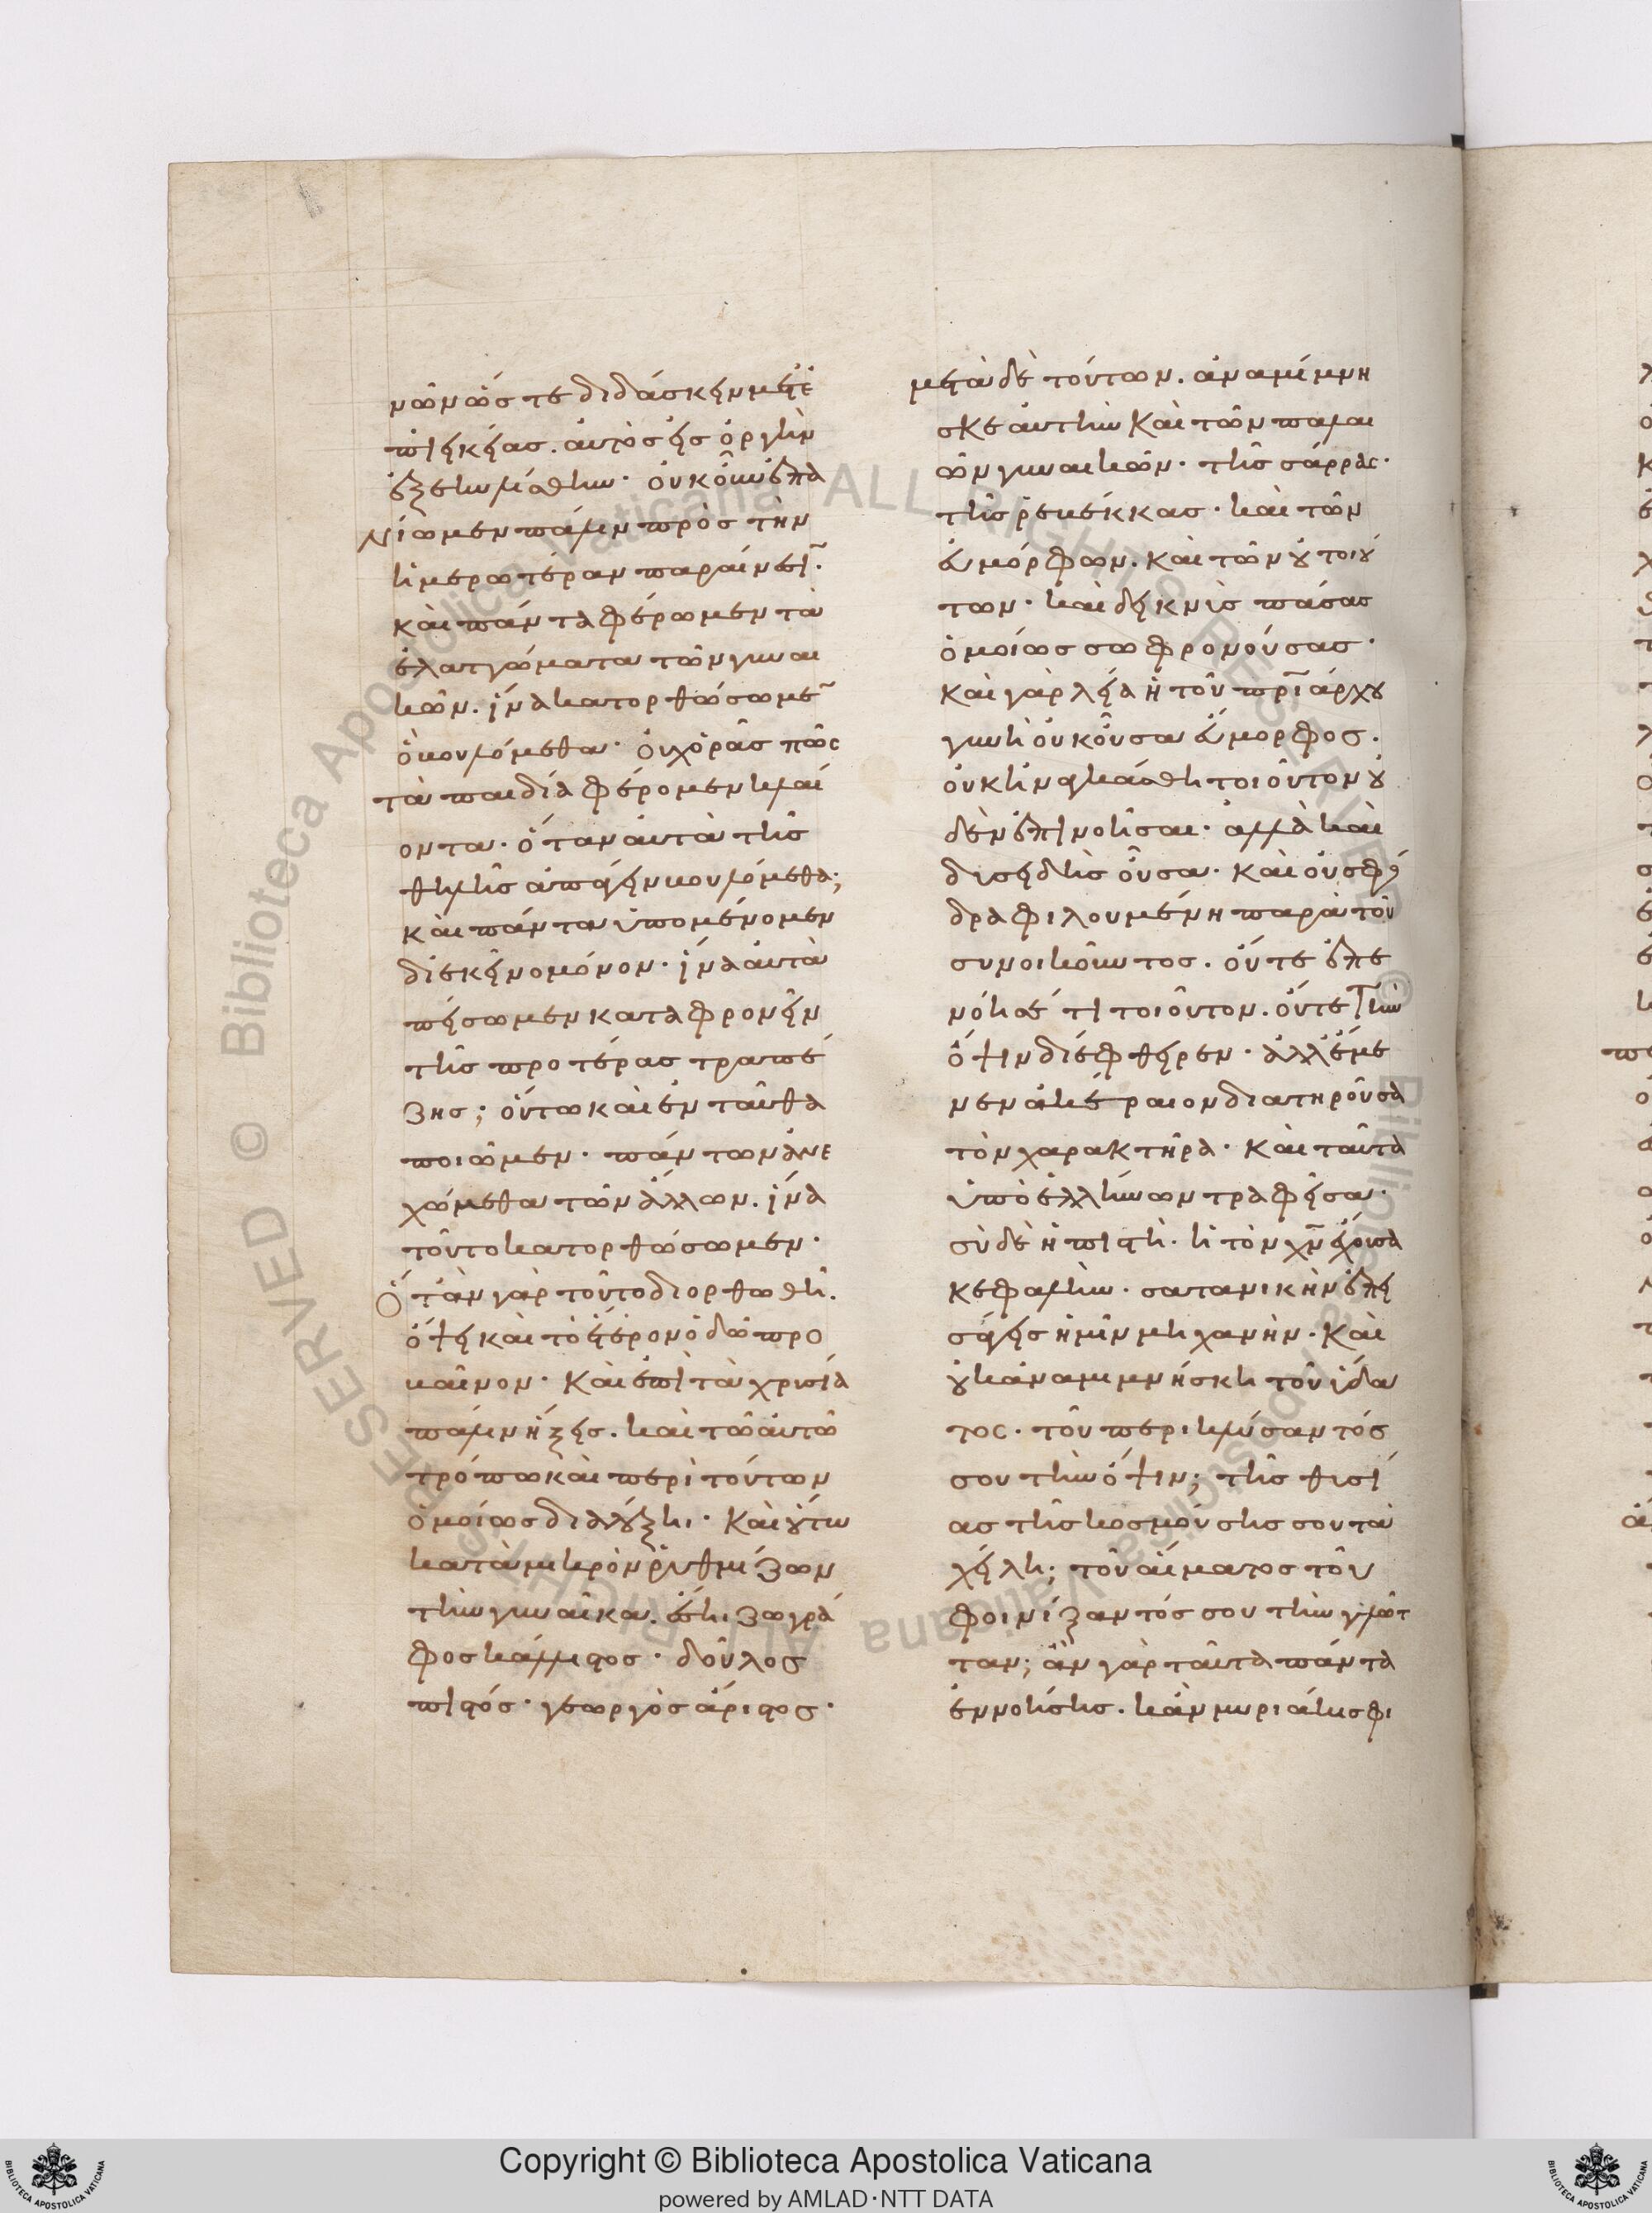 νῶν ὥστε διδάσκειν μετὲ
πιεικείας. αὐτὸς εἰς ὀργὴν
ἐξεκυλίσθην· οὐκοῦν ἐπα
νίωμεν πάλιν πρὸς τὴν
ἡμερωτέραν παραίνεσι̅.
καὶ πάντα φέρωμεν τὰ
ἐλαττώματα τῶν γυναι
κῶν. ἵνα κατορθώσωμε̅
ὃ βουλόμεθα· οὐχ ὁρᾶς πῶς
τὰ παιδία φέρομεν κλαί
οντα· ὅταν αὐτὰ τῆς
θηλῆς ἀποστῆσαι βουλόμεθα;
καὶ πάντα ὑπομένομεν
δι' ἐκεῖνο μόνον· ἵνα αὐτὰ
πείσωμεν καταφρονεῖν
τῆς προτέρας τραπέ
ζης; οὕτω καὶ ἐνταῦθα
ποιῶμεν· πάντων ἀνε
χώμεθα τῶν ἄλλων. ἵνα
τοῦτο κατορθώσωμεν·
Ὅταν γὰρ τοῦτο διορθωθῆ.
ὄψει καὶ τὸ ἕτερον ὁδῶ προ
βαῖνον· καὶ ἐπὶ τὰ χρυσία
πάλιν ἥξεις. καὶ τῶ αὐτῶ
τρόπω καὶ περὶ τούτων
ὁμοίως διαλέξηι· καὶ οὕτω
κατὰ μικρὸν ῥυθμίζων
τὴν γυναῖκα. ἔσηι ζωγρά
φος κάλλιστος· δοῦλος
πιστός· γεωργὸς ἄριστος·
μετὰ δὲ τούτων. ἀναμίμνη
σκε αὐτὴν καὶ τῶν παλαι
ῶν γυναικῶν· τῆς σάρρας·
τῆς ῥεβέκκας· καὶ τῶν
εὐμόρφων. καὶ τῶν οὐ τοιού
των· καὶ δείκνυς πάσας
ὁμοίως σωφρονούσας·
καὶ γὰρ λεία ἡ τοῦ πρι̅άρχου
γυνὴ οὐκ οὖσα εὔμορφος.
οὐκ ἠναγκάσθη τοιοῦτον οὐ
δὲν ἐπινοῆσαι· ἀλλὰ καὶ
δυσειδὴς οὖσα· καὶ οὐ σφό
δρα φιλουμένη παρὰ τοῦ
συνοικοῦντος. οὔτε ἐπε
νόησέ τι τοιοῦτον. οὔτε τὴν
ὄψιν διέφθειρεν· ἀλλ' ἔμε
νεν ἀκέραιον διατηροῦσα
τὸν χαρακτῆρα· καὶ ταῦτα
ὑπὸ ἑλλήνων τραφεῖσα·
σὺ δὲ ἡ πιστὴ· ἡ τὸν χ̅ν̅ ἔχουσα
κεφαλὴν· σατανικὴν ἐπει
σάγεις ἡμῖν μηχανὴν· καὶ
οὐκ ἀναμιμνήσκη τοῦ ὕδα
τος· τοῦ περικλύσαντός
σου τὴν ὄψιν; τῆς θυσί
ας τῆς κοσμούσης σου τὰ
χείλη; τοῦ αἵματος τοῦ
φοινίξαντός σου τὴν γλῶτ
ταν; ἂν γὰρ ταῦτα πάντα
ἐννοήσης. κἂν μυριάκις φι